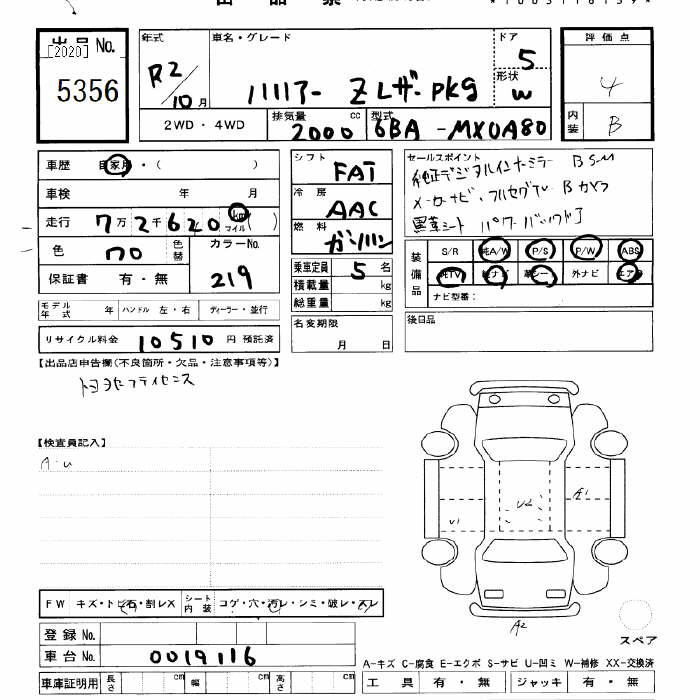 出品No.
[2020]
5356
年式
R2/10月
車名・グレード
ハリアー Zレザーpkg
ドア
5
形状
W
評価点
4
内装
B
2WD・4WD
排気量
2000
cc
型式
6BA-MXUA80
車歴 自家用・( )
車検 年 月
走行 7万2千620 km マイル ( )
色 クロ
色替
カラーNo.
219
保証書 有・無
モデル年式 年
ハンドル 左・右
ディーラー・並行
リサイクル料金 10510 円 預託済
シフト
FAT
冷房
AAC
燃料
ガソリン
乗車定員 5 名
積載量 kg
総重量 kg
名変期限
月 日
セールスポイント
純正デジタルインナーミラー BSM
メーカーナビ・フルセグTV Bカメラ
黒革シート パワーバックドア
装備品
S/R 純A/W P/S P/W ABS
純TV 純ナビ 革シート 外ナビ エアB
ナビ型番:
後日品
【出品店申告欄(不良箇所・欠品・注意事項等)】
トヨタセーフティセンス
【検査員記入】
A・U
U2
A1
U1
A2
FW キズ・トビ石・割レX
シート内装 コゲ・穴・汚レ・シミ・破レ・スレ
スペア
登録No.
車台No. 0019116
車庫証明用 長さ cm 幅 cm 高さ cm
A-キズ C-腐食 E-エクボ S-サビ U-凹ミ W-補修 XX-交換済
工具 有・無 ジャッキ 有・無